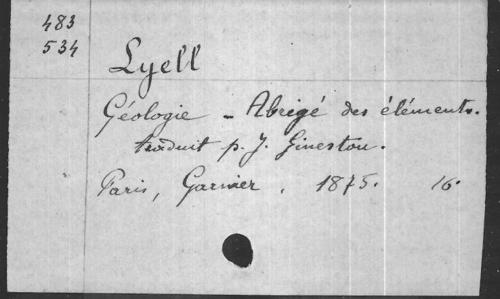 483
534
Lyell
Géologie - Abrégé des éléments.
traduit p. J. Gineston.
Paris, Garnier, 1875. 16.